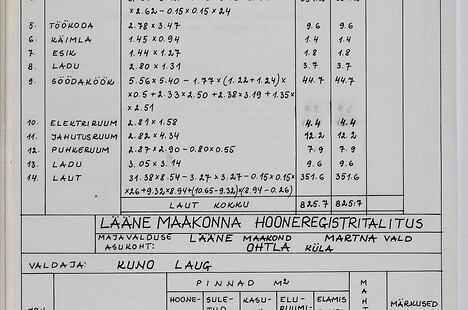 × 2.62 - 0.15 × 0.15 × 24
5. TÖÖKODA 2.78 × 3.47 9.6 9.6
6. KÄIMLA 1.45 × 0.94 1.4 1.4
7. ESIK 1.44 × 1.27 1.8 1.8
8. LADU 2.80 × 1.31 3.7 3.7
9. SÖÖDAKÖÖK 5.56 × 5.40 - 1.77 × (1.22 + 1.24) × 44.7 44.7
× 0.5 + 2.33 × 2.50 + 2.38 × 3.19 + 1.35 ×
× 2.51
10. ELEKTRIRUUM 2.81 × 1.58 4.4 4.4
11. JAHUTUSRUUM 2.82 × 4.34 12.2 12.2
12. PUHKERUUM 2.87 × 2.90 - 0.80 × 0.55 7.9 7.9
13. LADU 3.05 × 3.14 9.6 9.6
14. LAUT 31.38 × 8.54 - 3.27 × 3.27 - 0.15 × 0.15 × 351.6 351.6
× 26 + 9.32 × 8.94 + (10.65 - 9.32) × (8.94 - 0.26)
LAUT KOKKU 825.7 825.7
LÄÄNE MAAKONNA HOONEREGISTRITALITUS
MAJAVALDUSE LÄÄNE MAAKOND MARTNA VALD
ASUKOHT: OHTLA KÜLA
VALDAJA: KUNO LAUG
PINNAD M2
HOONE- SULE- KASU- ELU- ELAMIS
RUUMI-
M
A
H
T
MÄRKUSED